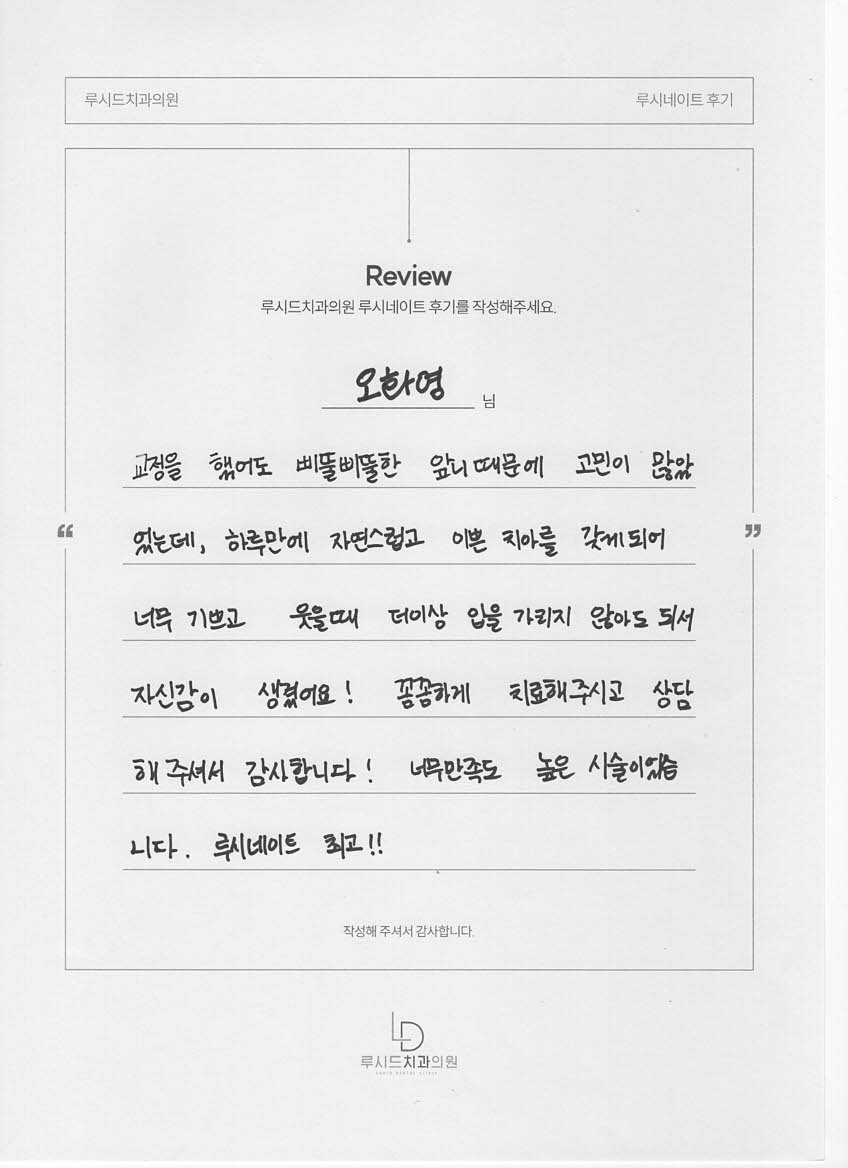 루시드치과의원 루시네이트 후기
Review
루시드치과의원 루시네이트 후기를 작성해주세요.
오화영 님
교정을 했어도 삐뚤삐뚤한 앞니 때문에 고민이 많았
“ 었는데, 하루만에 자연스럽고 이쁜 치아를 갖게되어 ”
너무 기쁘고 웃을때 더이상 입을 가리지 않아도 되서
자신감이 생겼어요! 꼼꼼하게 치료해주시고 상담
해 주셔서 감사합니다! 너무만족도 높은 시술이었습
니다. 루시네이트 최고!!
작성해 주셔서 감사합니다.
LD
루시드치과의원
LUCID DENTAL CLINIC